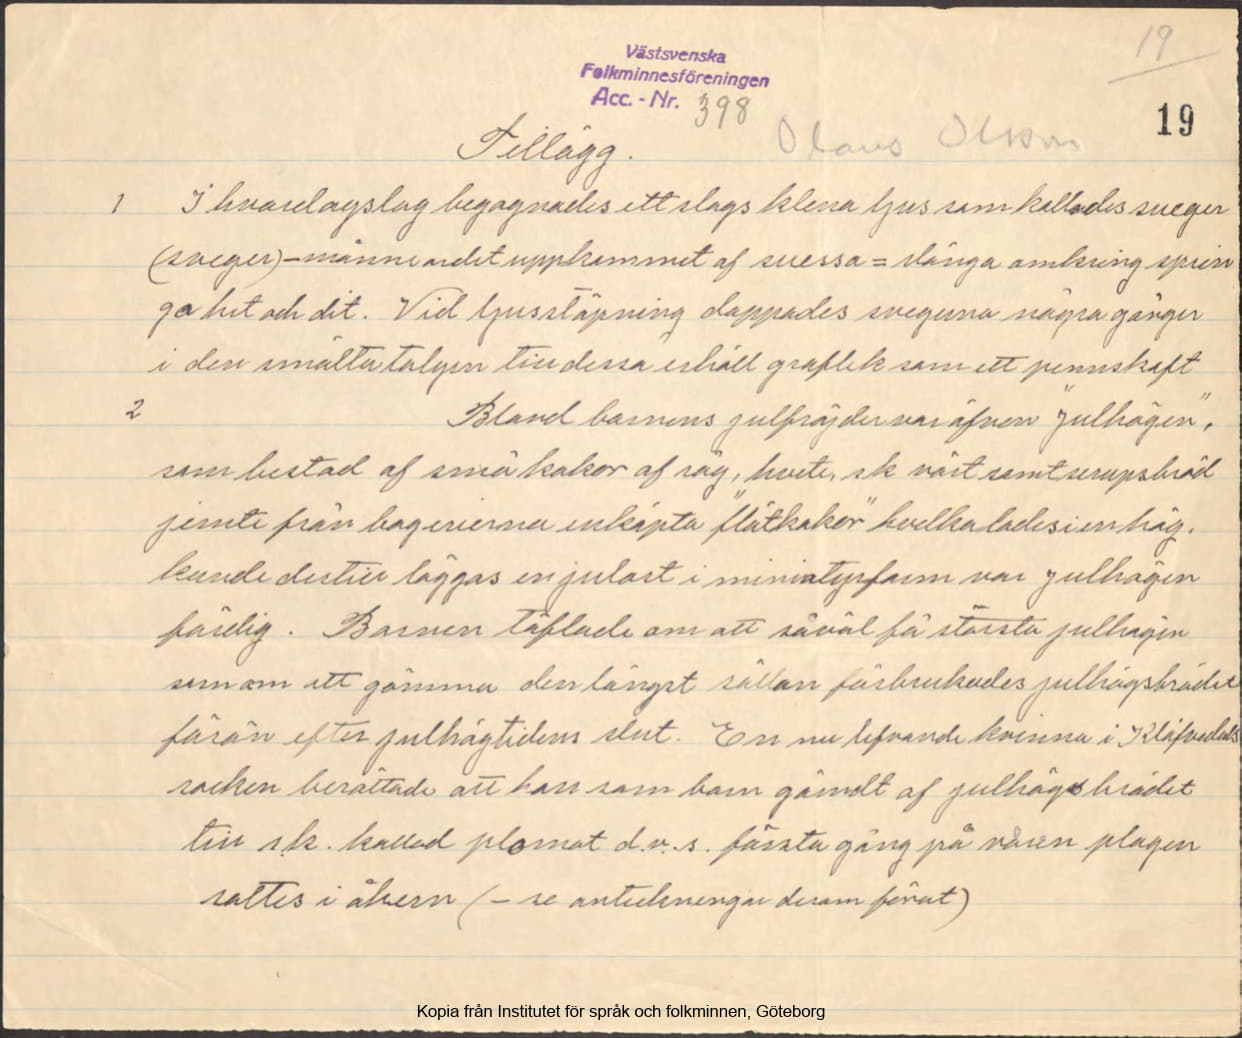 19
Västsvenska
Folkminnesföreningen
Acc. - Nr. 398
19
Olaus Olsson
Tillägg.
1 I hvardagslag begagnades ett slags klena ljus som kallades sveger
(sveger) – månne ordet uppkommet af svessa = slänga omkring sprin
ga hit och dit. Vid ljusstöpning doppades svegerna några gånger
i den smälta talgen till dessa erhöll groflek som ett pennskaft
2 Bland barnens julfröjder var äfven "julhögen",
som bestod af små kakor af råg, hvete, sk vört samt sirupsbröd
jemte från bagerierna inköpta "flåtkakor" hvilka lades i en hög.
kunde dertill läggas en julost i miniatyrform var julhögen
färdig. Barnen täflade om att såväl få största julhögen
som om att gömma den längst sällan förbrukades julhögsbrödet
förän efter julhögtidens slut. En nu lefvande kvinna i Klöfvedals
socken berättade att hon som barn gömdt af julhögsbrödet
till s.k. kallad plomat d.v.s. första gång på våren plogen
sattes i åkern (– se anteckningar derom förut)
Kopia från Institutet för språk och folkminnen, Göteborg